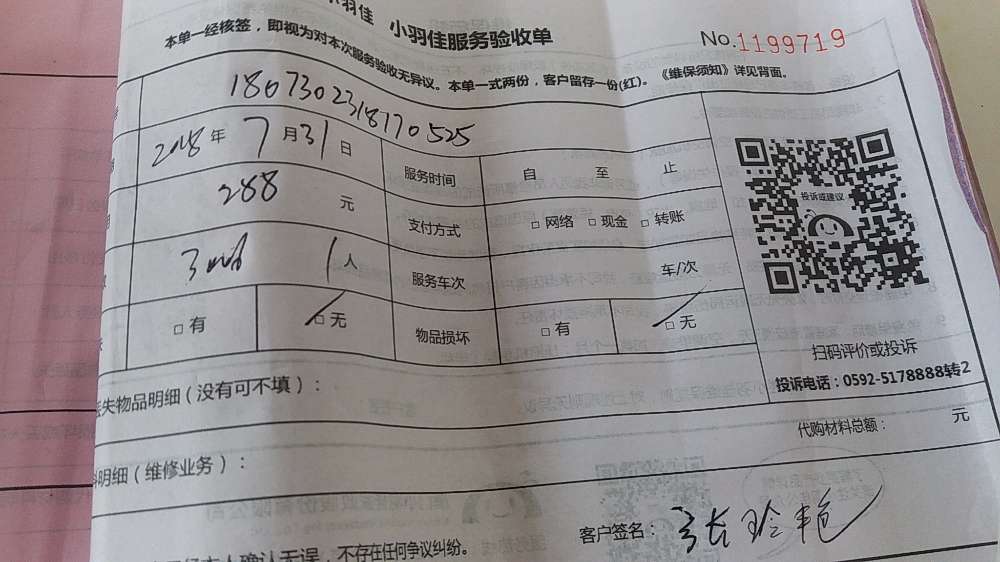 小羽佳 小羽佳服务验收单
No.1199719
本单一经核签，即视为对本次服务验收无异议。本单一式两份，客户留存一份(红)。《维保须知》详见背面。
1807302318170525
2018年7月31日 服务时间 自 至 止
288 元 支付方式 □网络 □现金 □转账
1人 服务车次 车/次
□有 □无 物品损坏 □有 □无
投诉或建议
扫码评价或投诉
投诉电话：0592-5178888转2
失物品明细（没有可不填）：
代购材料总额： 元
明细（维修业务）：
客户签名：张玲艳
本人确认无误，不存在任何争议纠纷。